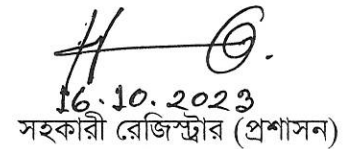 16.10.2023
সহকারী রেজিস্ট্রার (প্রশাসন)